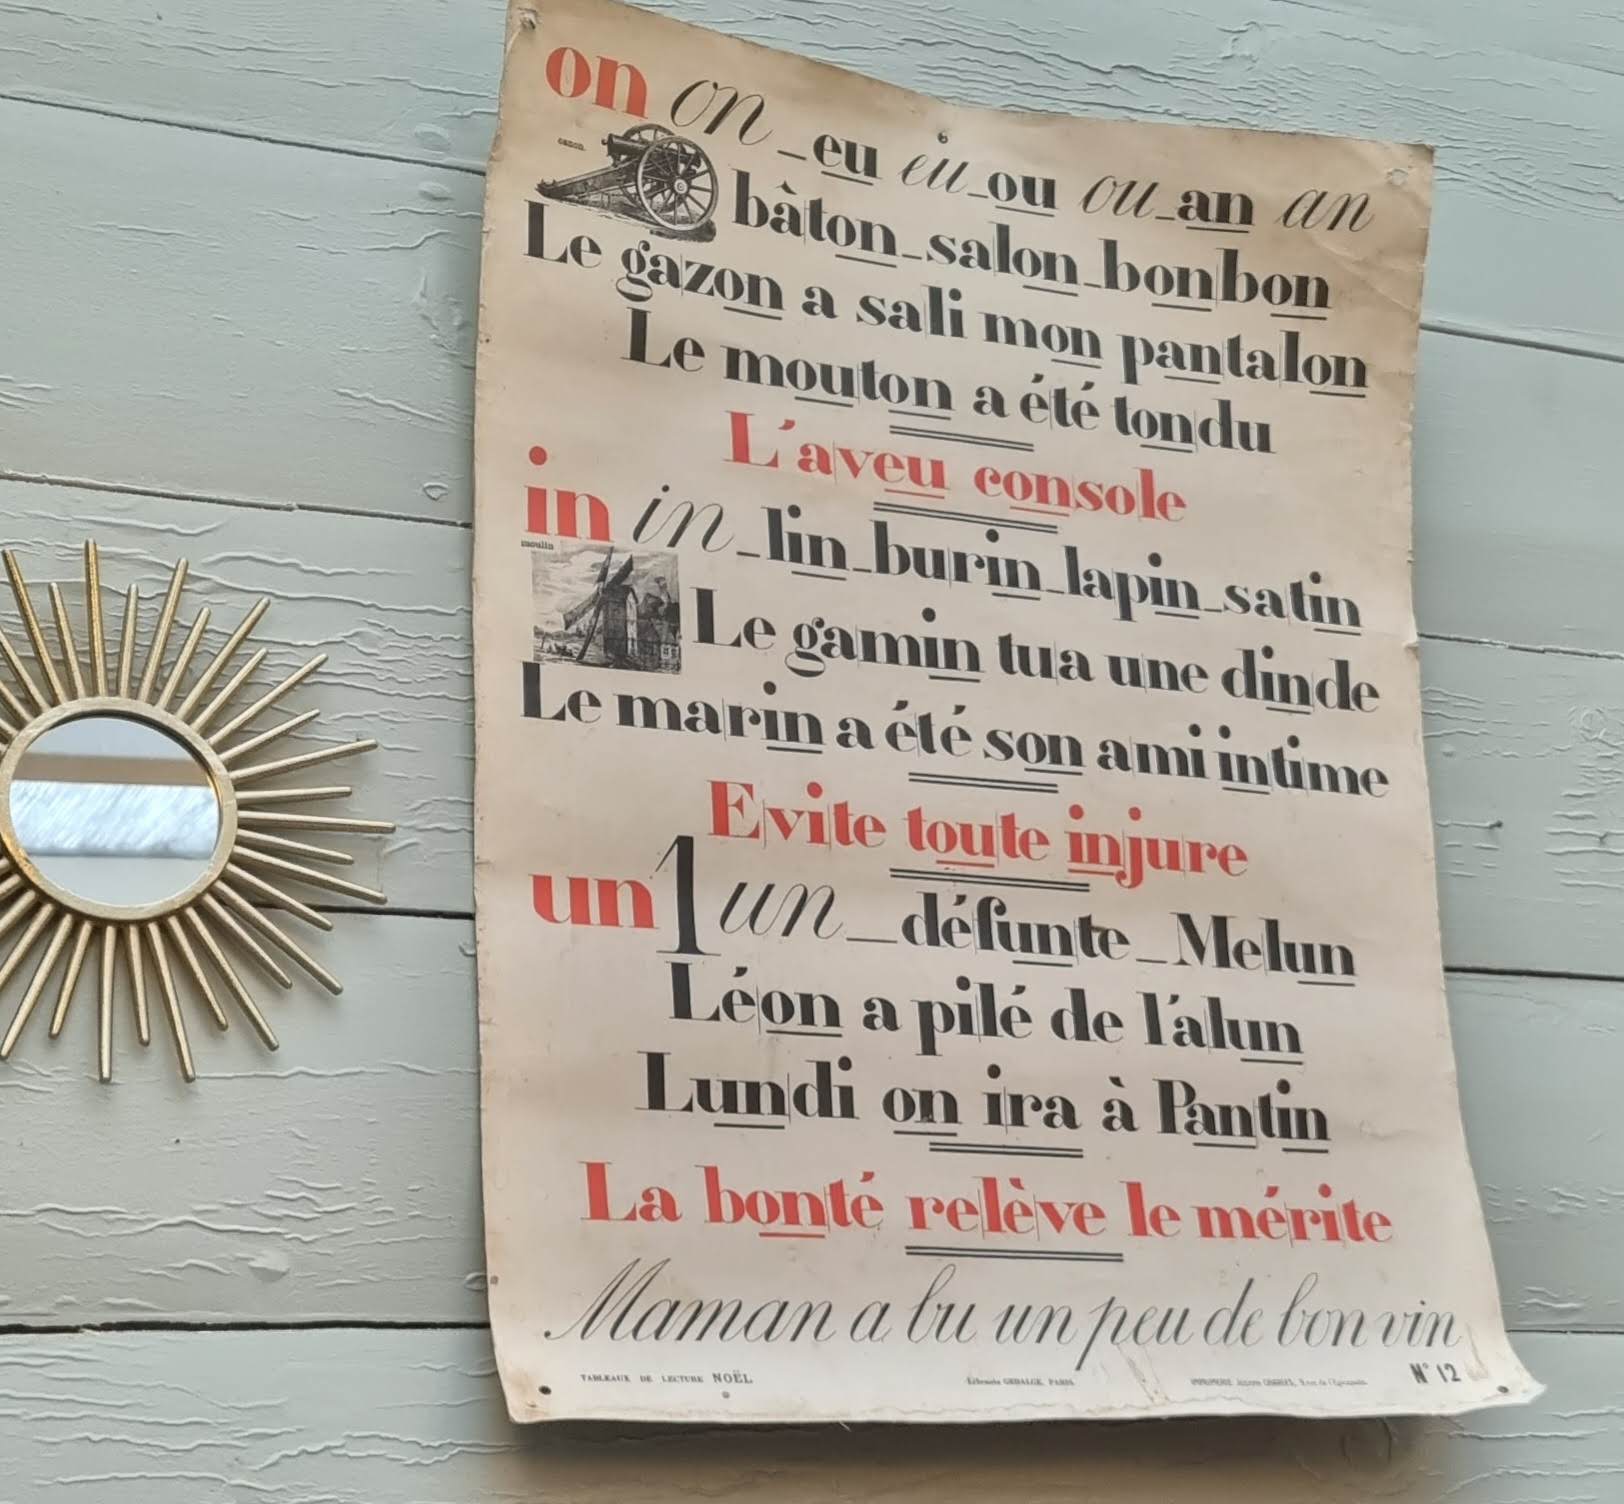 on on _ eu eu _ ou ou _ an an
canon.
bàton _ salon _ bonbon
Le gazon a sali mon pantalon
Le mouton a été tondu
L'aveu console
in in _ lin _ burin _ lapin _ satin
moulin
Le gamin tua une dinde
Le marin a été son ami intime
Evite toute injure
un 1 un _ défunte _ Melun
Léon a pilé de l'alun
Lundi on ira à Pantin
La bonté relève le mérite
Maman a bu un peu de bon vin
TABLEAUX DE LECTURE NOËL Librairie GEDALGE, PARIS. IMPRIMERIE N° 12